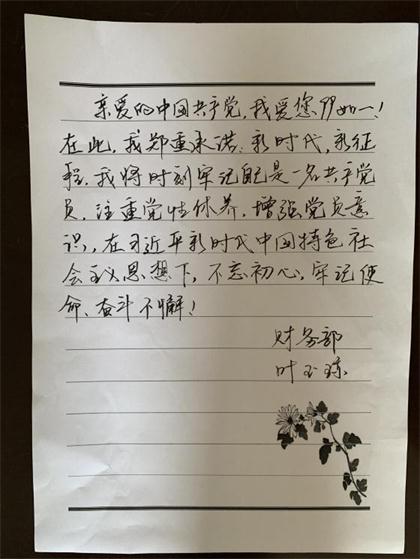 亲爱的中国共产党，我爱您99如一！
在此，我郑重承诺：新时代，新征
程，我将时刻牢记自己是一名共产党
员，注重党性休养，增强党员意
识，在习近平新时代中国特色社
会主义思想下，不忘初心，牢记使
命、奋斗不懈！
财务部
叶玉珠